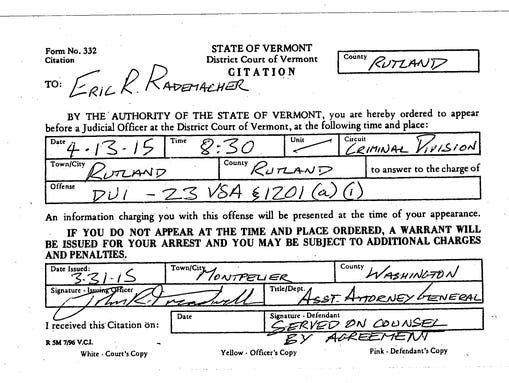 Form No. 332 STATE OF VERMONT
Citation District Court of Vermont County RUTLAND
CITATION
TO: ERIC R. RADEMACHER
BY THE AUTHORITY OF THE STATE OF VERMONT, you are hereby ordered to appear
before a Judicial Officer at the District Court of Vermont, at the following time and place:
Date 4-13-15 Time 8:30 Unit Circuit CRIMINAL DIVISION
Town/City RUTLAND County RUTLAND to answer to the charge of
Offense DUI - 23 VSA § 1201 (a) (i)
An information charging you with this offense will be presented at the time of your appearance.
IF YOU DO NOT APPEAR AT THE TIME AND PLACE ORDERED, A WARRANT WILL
BE ISSUED FOR YOUR ARREST AND YOU MAY BE SUBJECT TO ADDITIONAL CHARGES
AND PENALTIES.
Date Issued: 3-31-15 Town/City MONTPELIER County WASHINGTON
Signature - Issuing Officer Title/Dept. ASST. ATTORNEY GENERAL
I received this Citation on: Date Signature - Defendant SERVED ON COUNSEL
BY AGREEMENT
R 5M 7/96 V.C.I.
White - Court's Copy Yellow - Officer's Copy Pink - Defendant's Copy